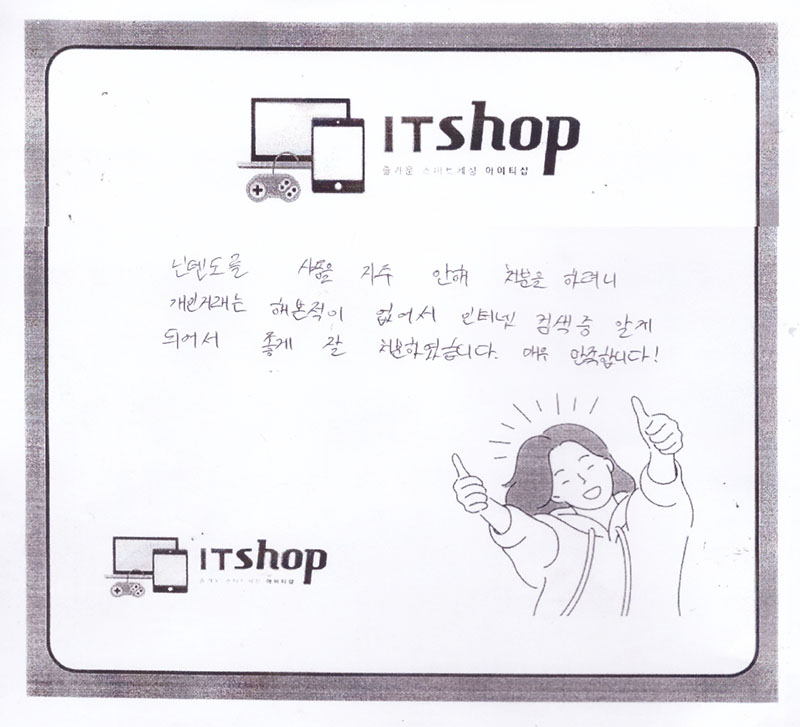 ITshop
즐거운 스마트세상 아이티샵
닌텐도를 사용을 자주 안해 처분을 하려니
개인거래는 해본적이 없어서 인터넷 검색중 알게
되어서 좋게 잘 처분하였습니다. 매우 만족합니다!
ITshop
즐거운 스마트세상 아이티샵